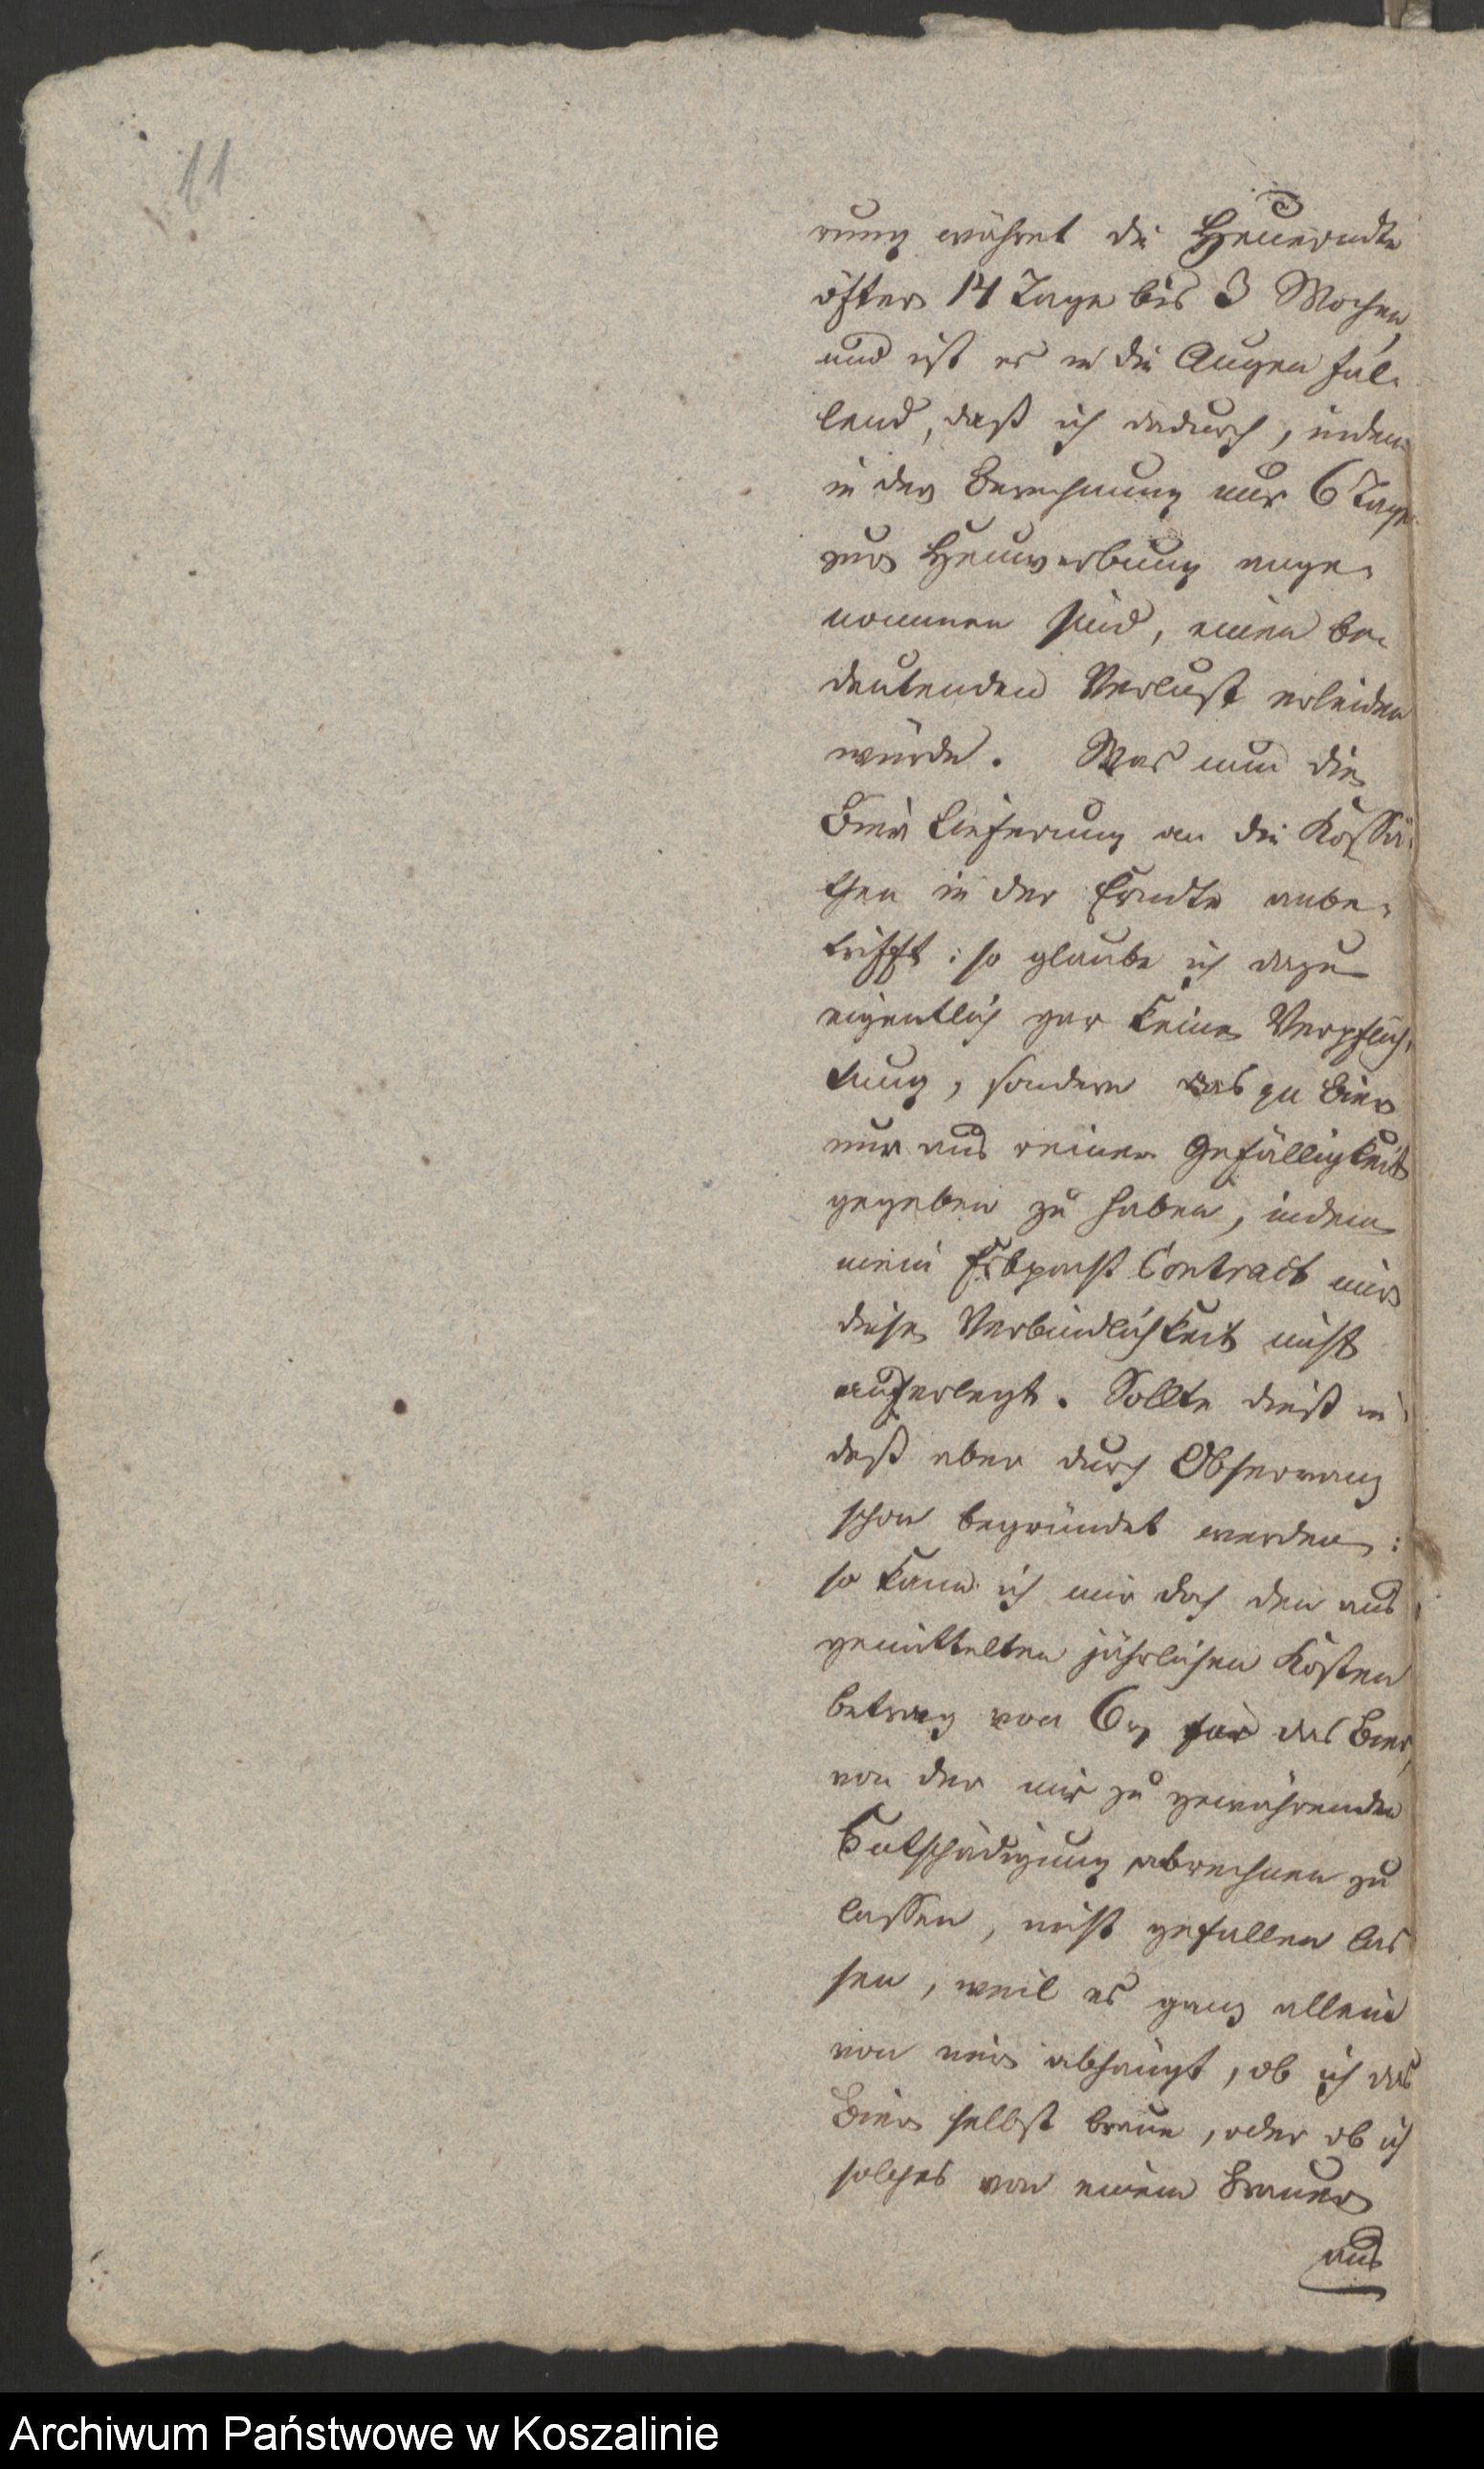 11
rung währet die Heuerndte
öfters 14 Tage bis 3 Wochen,
und ist es in die Augen fal-
lend, daß ich dadurch, indem
in der Berechnung nur 6 Tage
zur Heuwerbung ange-
nommen sind, einen be-
deutenden Verlust erleiden
würde. Was nun die
Bier Lieferung an die Kossä-
then in der Erndte anbe-
trifft: so glaube ich dazu
eigentlich gar keine Verpflich-
tung, sondern das Bier
nur aus reiner Gefälligkeit
gegeben zu haben, indem
mein Erbpacht Contract mir
diese Verbindlichkeit nicht
auferlegt. Sollte dieß in-
deß aber durch Observanz
schon begründet werden:
so kann ich mir doch den aus
gemittelten jährlichen Kosten
betrag von 6 für das Bier,
von der mir zu gewährenden
Entschädigung abrechnen zu
lassen, nicht gefallen las
sen, weil es ganz allein
von mir abhängt, ob ich das
Bier selbst braue, oder ob ich
solches von einem Brauer
aus
Archiwum Państwowe w Koszalinie